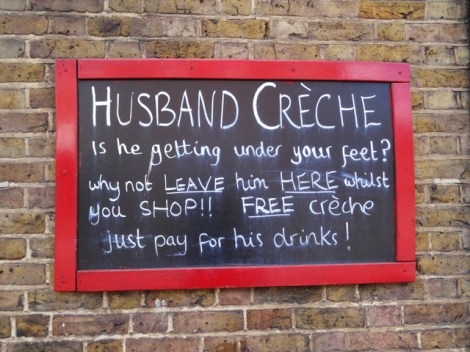 HUSBAND CRÈCHE
Is he getting under your feet?
why not LEAVE him HERE whilst
you SHOP!! FREE crèche
just pay for his drinks!